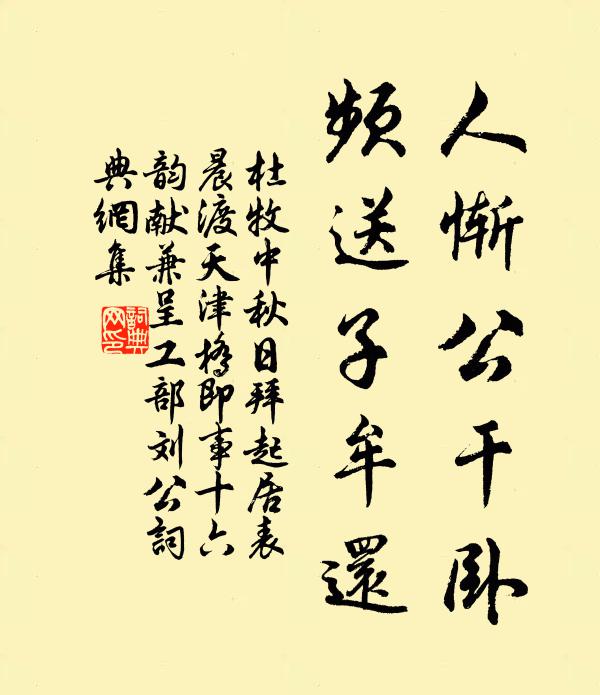 人慚公干卧
頻送子牟還
杜牧中秋日拜起居表
晨渡天津橋即事十六
韵献兼呈工部刘公詞
典網集
詞典网印